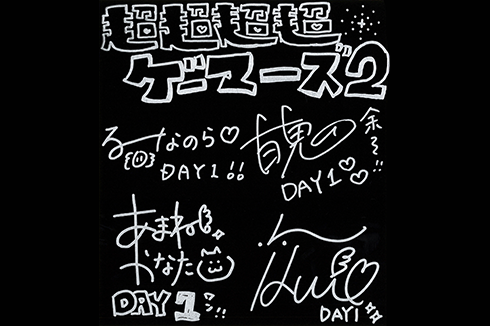 超超超超
ゲーマーズ2
なのら♡
DAY1!!
DAY1♡♡
あまね
かなた
DAY 1 ワン!!
DAY1